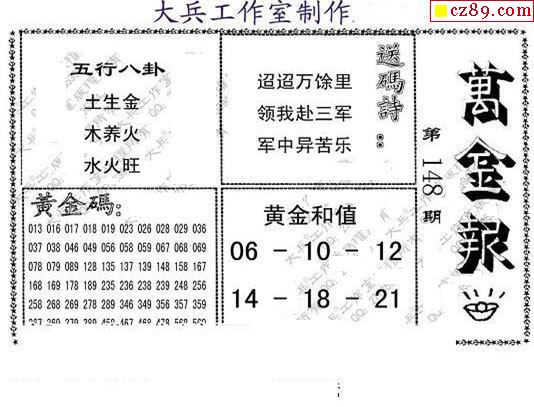 大兵工作室制作
cz89.com
五行八卦
土生金
木养火
水火旺
送碼詩:
迢迢万馀里
领我赴三军
军中异苦乐
萬金報
第148期
黄金碼:
013 016 017 018 019 023 026 028 029 036
037 038 046 049 056 057 059 067 068 069
078 079 089 128 136 137 149 158 156 167
168 169 178 189 235 236 239 245 246 256
258 268 278 289 347 348 356 358 359 368
黄金和值
06 - 10 - 12
14 - 18 - 21